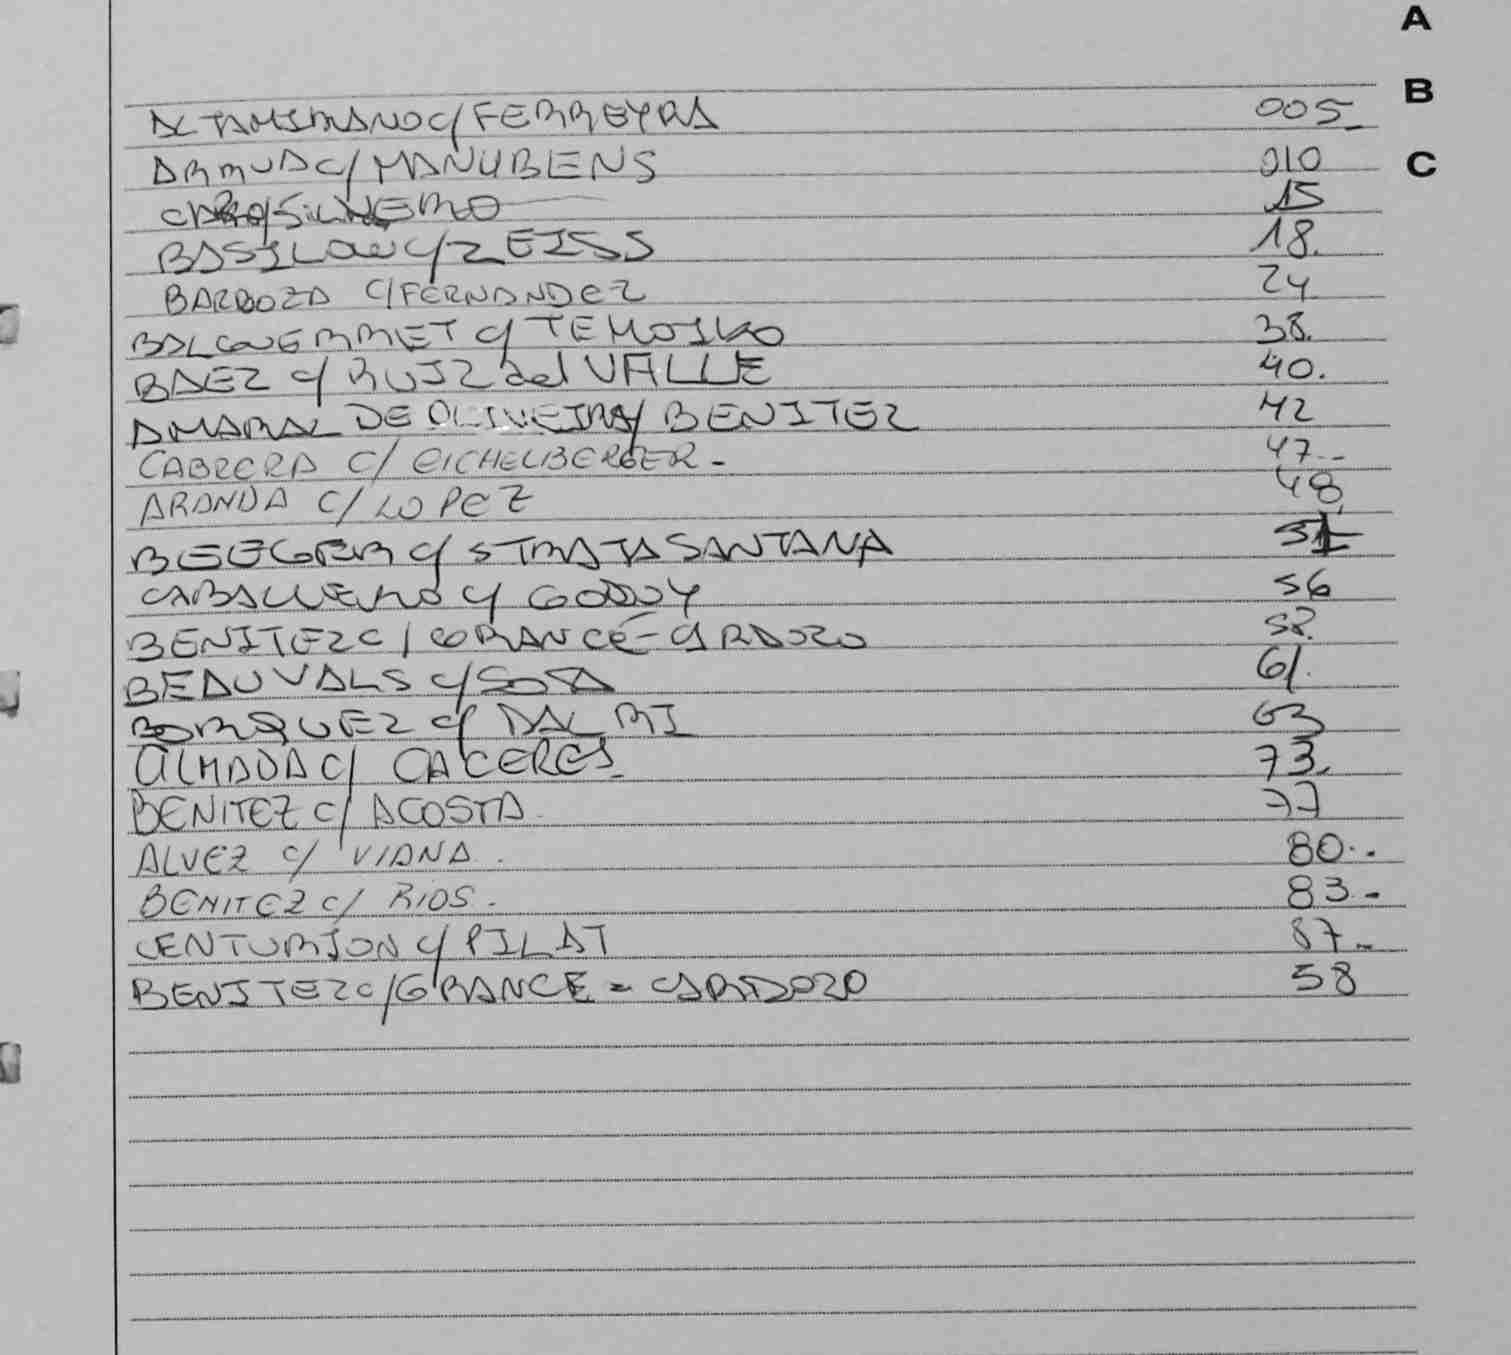 A
B
C
ALTAMIRANO c/ FERREYRA 005
ARRUA c/ MANUBENS 010
CARO/ 15
BASILOW c/ ZEISS 18.
BARBOZA C/ FERNANDEZ 24
c/ 38.
BAEZ c/ RUIZ del VALLE 40.
AMARAL DE OLIVEIRA/ BENITEZ 42
CABRERA C/ EICHELBERGER - 47--
ARANDA C/ LOPEZ 48
c/ STRATA SANTANA 51
CABALLERO c/ GODOY 56
BENITEZ C/ GRANCÉ - CARDOZO 58.
BEAUVALS c/ SOSA 61.
BORQUEZ c/ DAL RI 63
ALMADA C/ CACERES 73.
BENITEZ C/ ACOSTA 77
ALVEZ C/ VIANA. 80..
BENITEZ C/ RIOS. 83.-
CENTURION c/ PILAT 87-
BENITEZ c/ GRANCE - CARDOZO 58